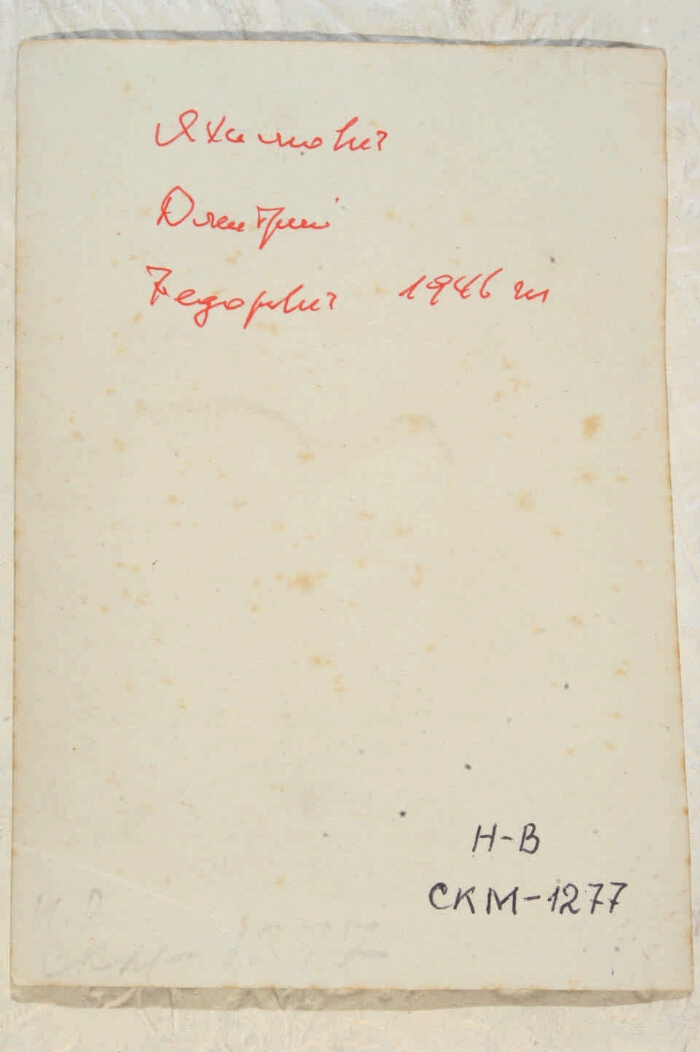 Яхимович
Дмитрий
Федорович 1946
Н-В
СКМ-1277